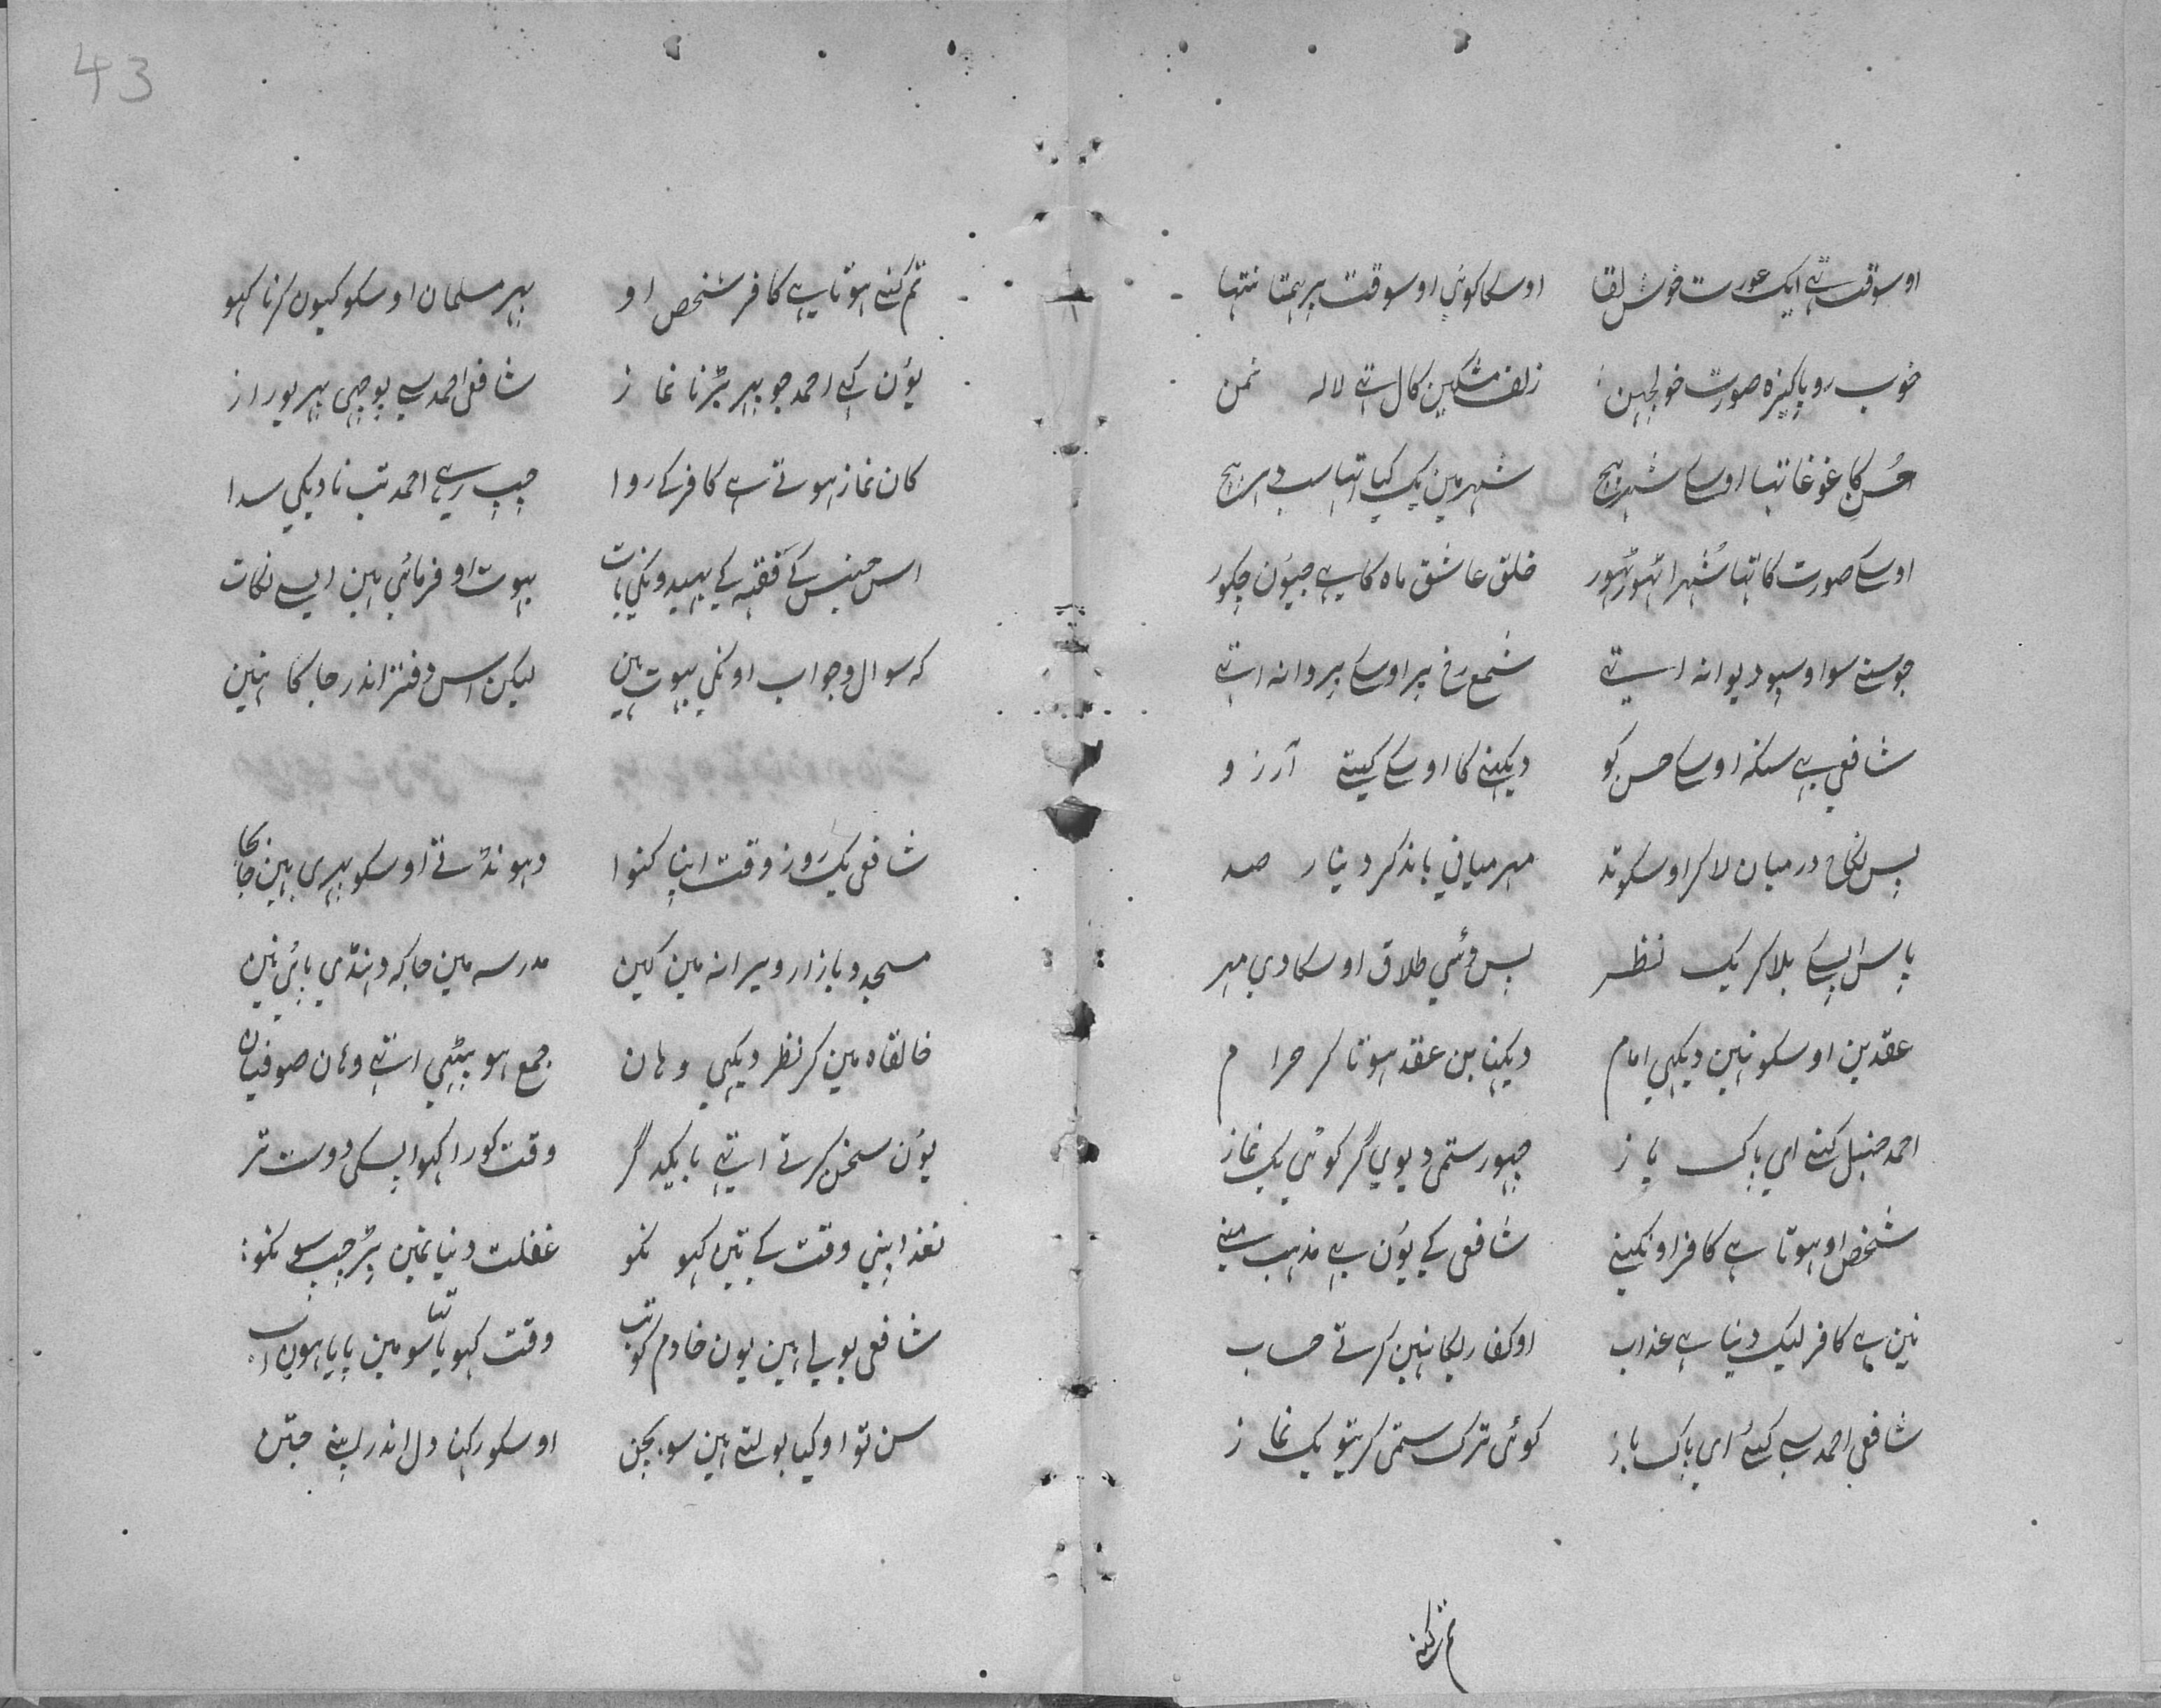 اوسوقت تہی ایک عورت خوش لقا اوسکا کوئی اوسوقت پر ہمتا نتہا
خوب رو پاکیزہ صورت خوجبین زلف مشکین کال تہی لالہ نمن
حسن کا غوغا تہا اوسکے شہر بیچ شہر مین یک کیا اتہا سب دہر بیچ
اوسکے صورت کا تہا شہرا ٹہور ٹہور خلق عاشق ماہ کا ہے جیون چکور
جو سنے سو اوسپو دیوانہ اتہے شمع رخ پر اوسکے پروانہ اتہے
شافعی بہی سنکہ اوسکے حسن کو دیکہنے کا اوسکے کیتے آرزو
پس نکاح درمیان لاکر اوسکوند مہر میانی باندکر دینار صد
پاس اپسکے بلاکر یک نظر پس وئی طلاق اوسکا دی مہر
عقد بن اوسکو نہین دیکہی امام دیکہنا بن عقد ہوتا کر حرام
احمد حنبل کہنے ای پاک باز چہور ستمی دیوی گر کوئی یک نماز
شخص او ہوتا ہے کافر اونکنے شافعی کے یون ہے مذہب منے
نین ہے کافر لیک دنیا ہے عذاب او کفار لکا نہین کرتے حساب
شافعی احمد سے کہئے ای پاک باز کوئی ترک ستمی کریتو یک نماز
تم کنے
43
تم کنے ہوتا ہے کافر شخص او پہر مسلمان اوسکو کیون کرنا کہو
یون کہے احمد جو پہر پڑنا نماز شافعی احمد سے پوچہی پہر یو راز
کان نماز ہوتے ہے کافر کے روا چپ رہے احمد تب نا دیکے سدا
اس جنس کے فقہہ کے بہید ونکی بات بہوت او فرمائی ہین ایسے نکات
کہ سوال وجواب اونکی بہوت ہین لیکن اس دفتر اندر جاکا نہین
شافعی یک روز وقت اپنا کنوا دہونڈتے اوسکو پہری ہین جابجا
مسجد و بازار ویرانہ مین کین مدرسہ مین جاکہ دہنڈی پائی نین
خانقاہ مین کر نظر دیکہی وہان جمع ہو بیٹہی اتہے وہان صوفیان
یون سخن کرتے اتہے بایکدگر وقت کو را کہو اپسکی دوست تر
نغذ اپنی وقت کے تین کہو نکو غفلت دنیا نمین پڑ چپ سو نکو
شافعی بولے ہین یون خادم کو تب وقت کہویا تہا سو مین پایا ہون اب
سن تو او کیا بولتے ہین سو بچن اوسکو رکہنا دل اندر اپنے جتن